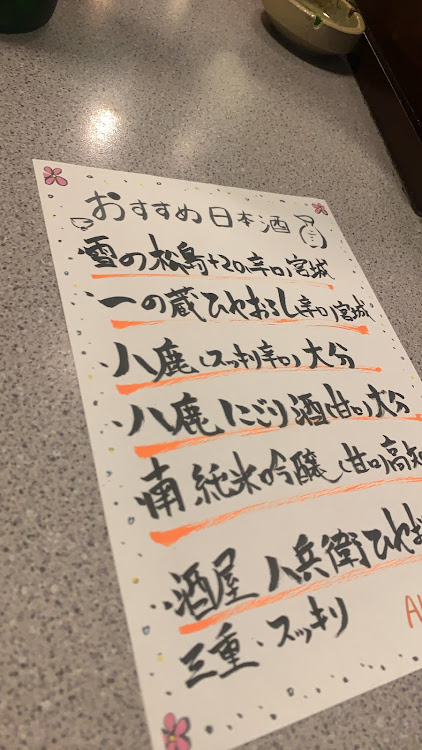 おすすめ日本酒
雪の松島+20辛口 宮城
一の蔵ひやおろし辛口 宮城
八鹿(スッキリ辛口)大分
八鹿にごり酒(甘口)大分
南 純米吟醸(甘口)高知
酒屋八兵衛ひやお
三重・スッキリ